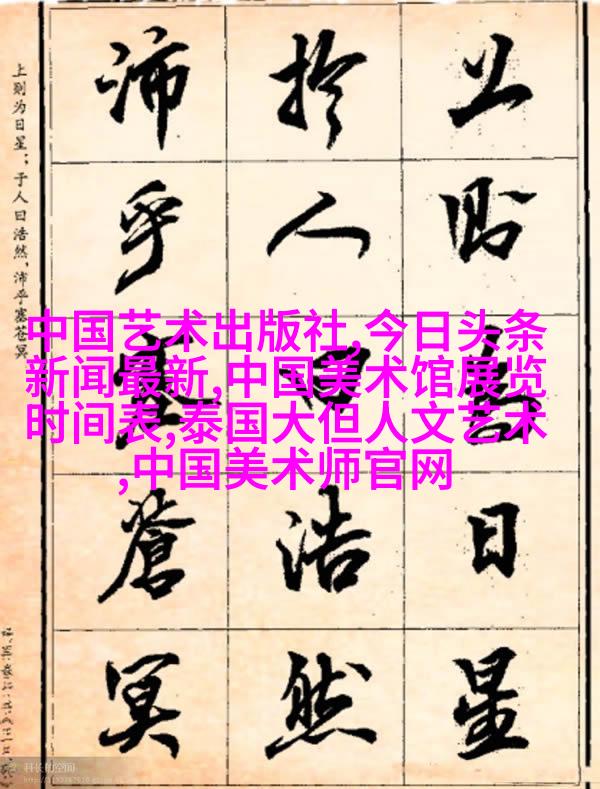 上则為日星
扵人曰浩然
沛乎塞蒼冥
上则为日星；于人曰浩然，沛乎塞苍冥
中国艺术出版社,今日头条
新闻最新,中国美术馆展览
时间表,泰国大但人文艺术
,中国美术师官网
科长的空间